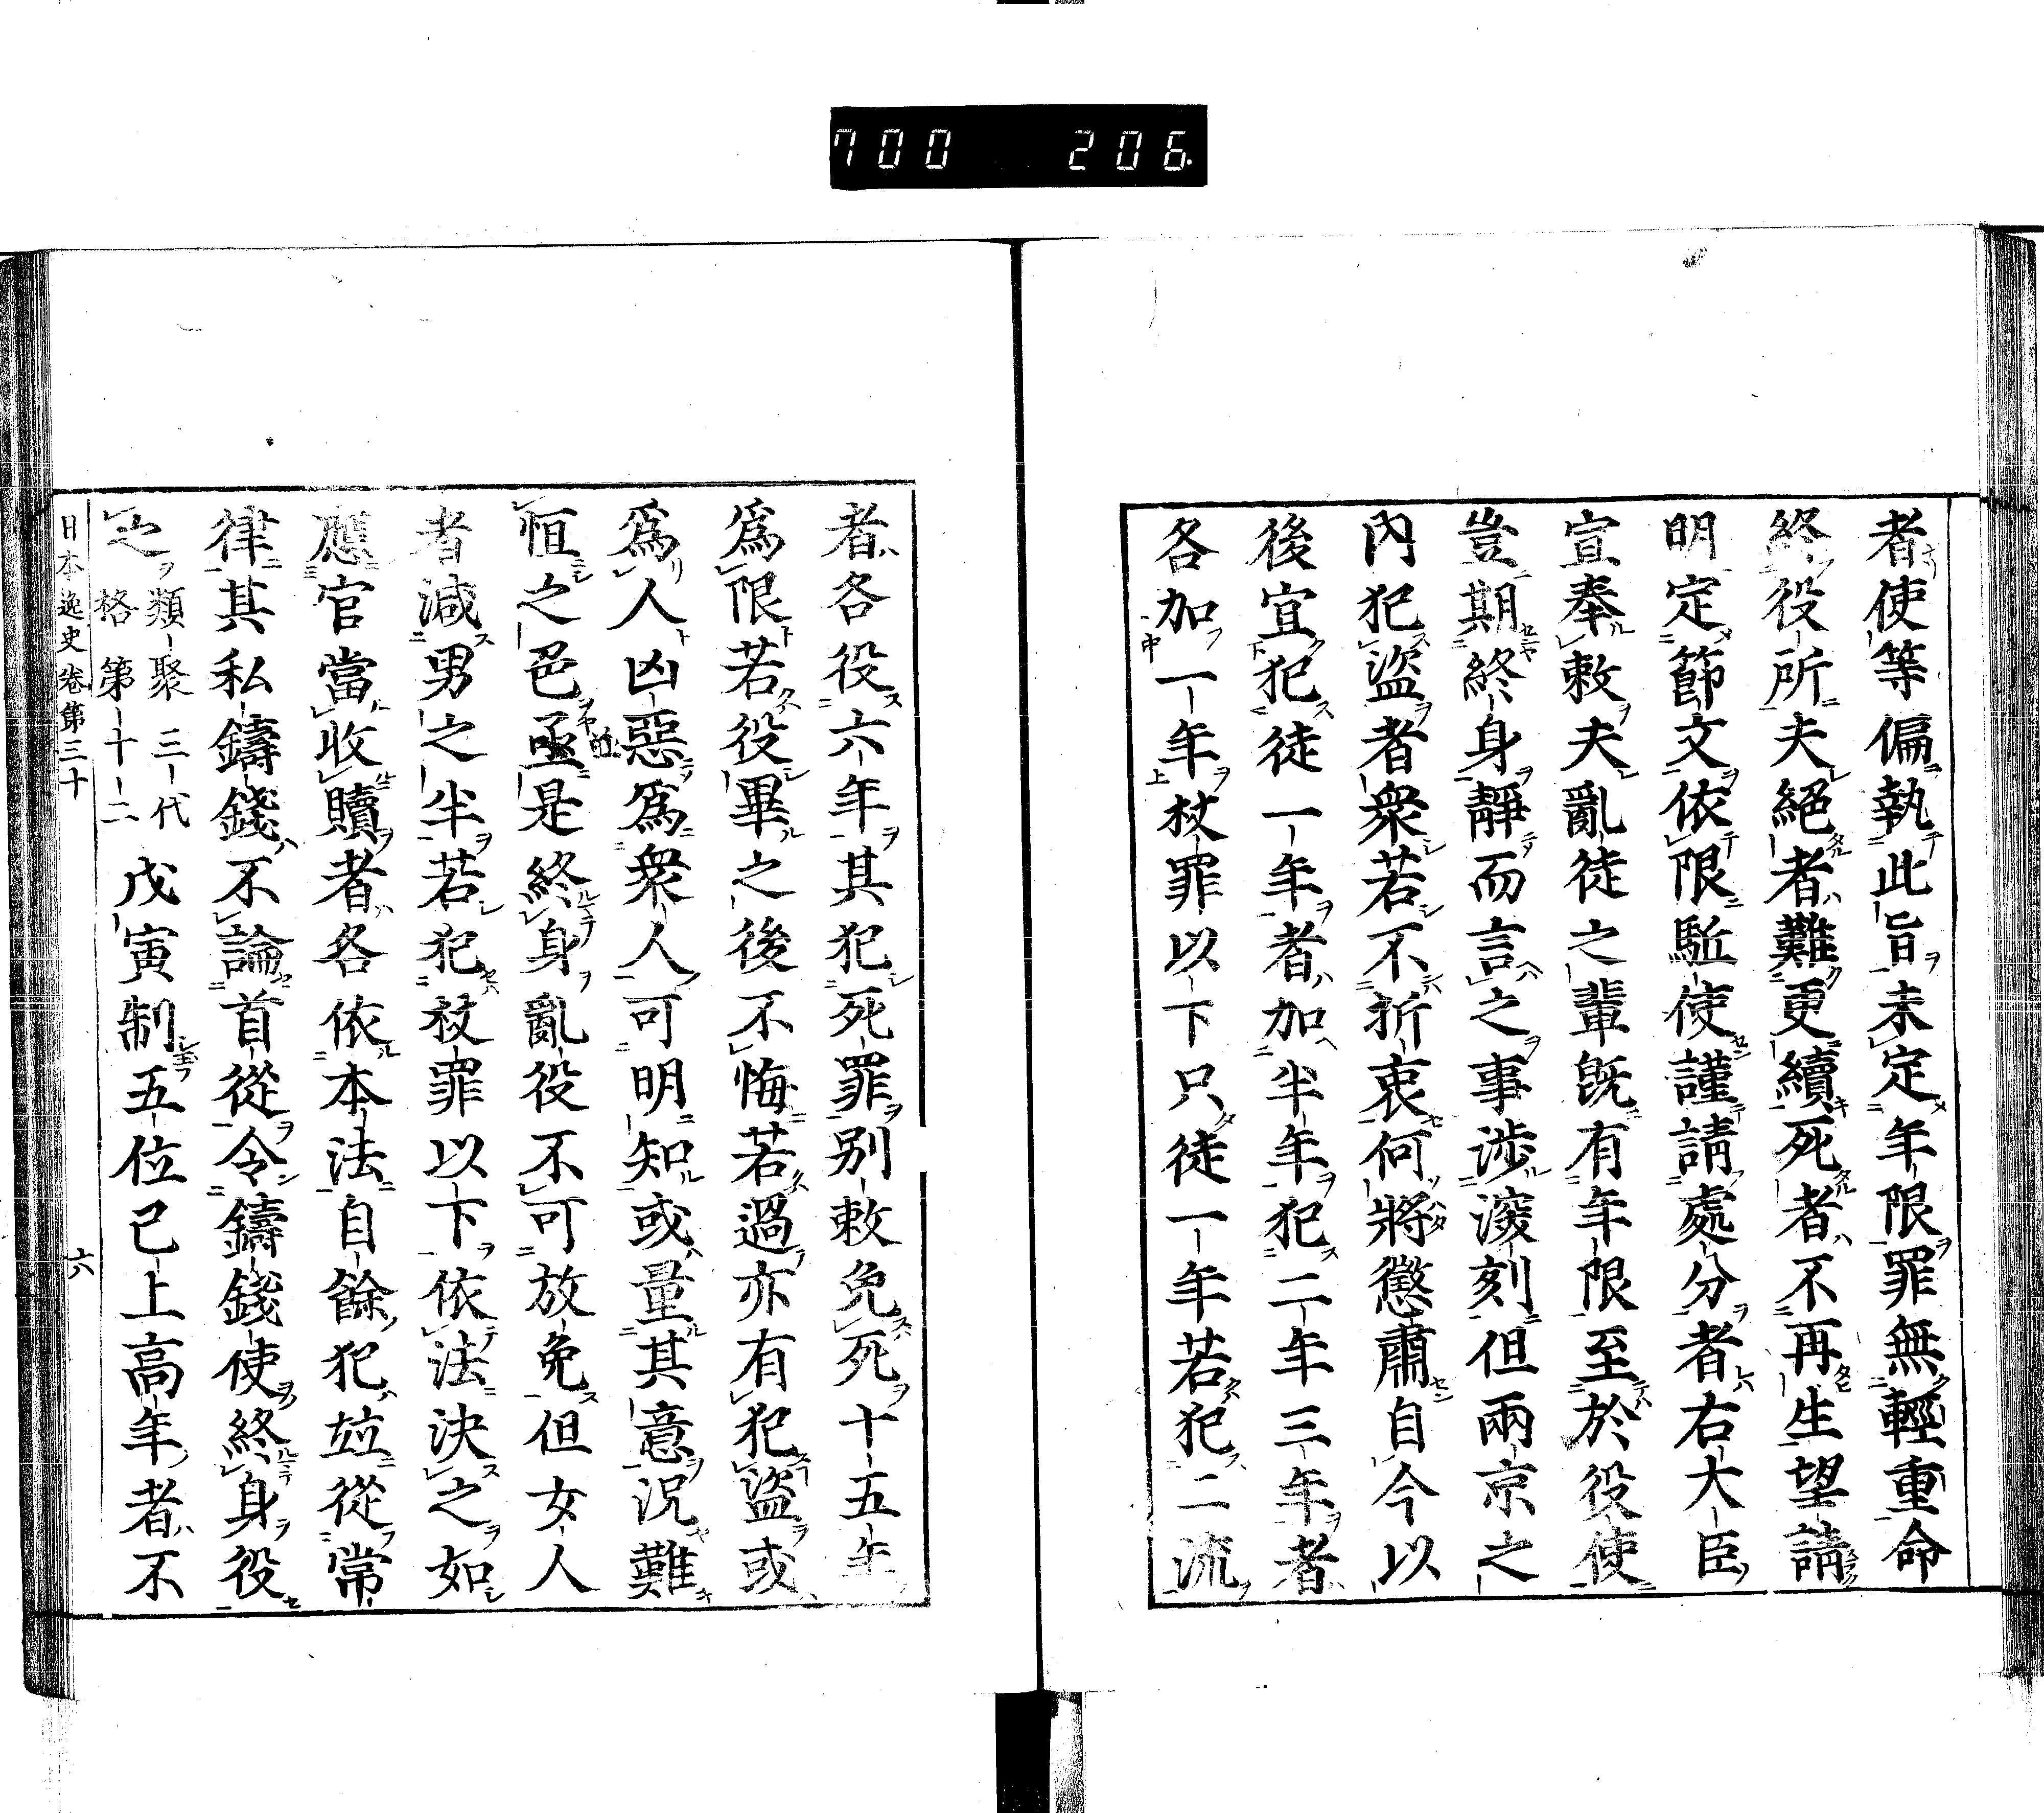 700 206
者使等偏執此旨未定年限罪無輕重命
終役所夫絕者難更續死者不再生望請
明定節文依限駈使謹請處分者右大臣
宣奉敕夫亂徒之輩旣有年限至於役使
豈期終身靜而言之事涉深刻但兩京之
內犯盜者衆若不折衷何將懲肅自今以
後宜犯徒一年者加半年犯二年三年者
各加一年杖罪以下只徒一年若犯二流
者各役六年其犯死罪別敕免死十五年
爲限若役畢之後不悔若過亦有犯盜或
爲人凶惡爲衆人可明知或量其意況難
恒之色亟是終身亂役不可放免但女人
者減男之半若犯杖罪以下依法決之如
應官當收贖者各依本法自餘犯竝從常
律其私鑄錢不論首從令鑄錢使終身役
之 類聚三代格第十二 戊寅制五位已上高年者不
日本逸史卷第三十 六